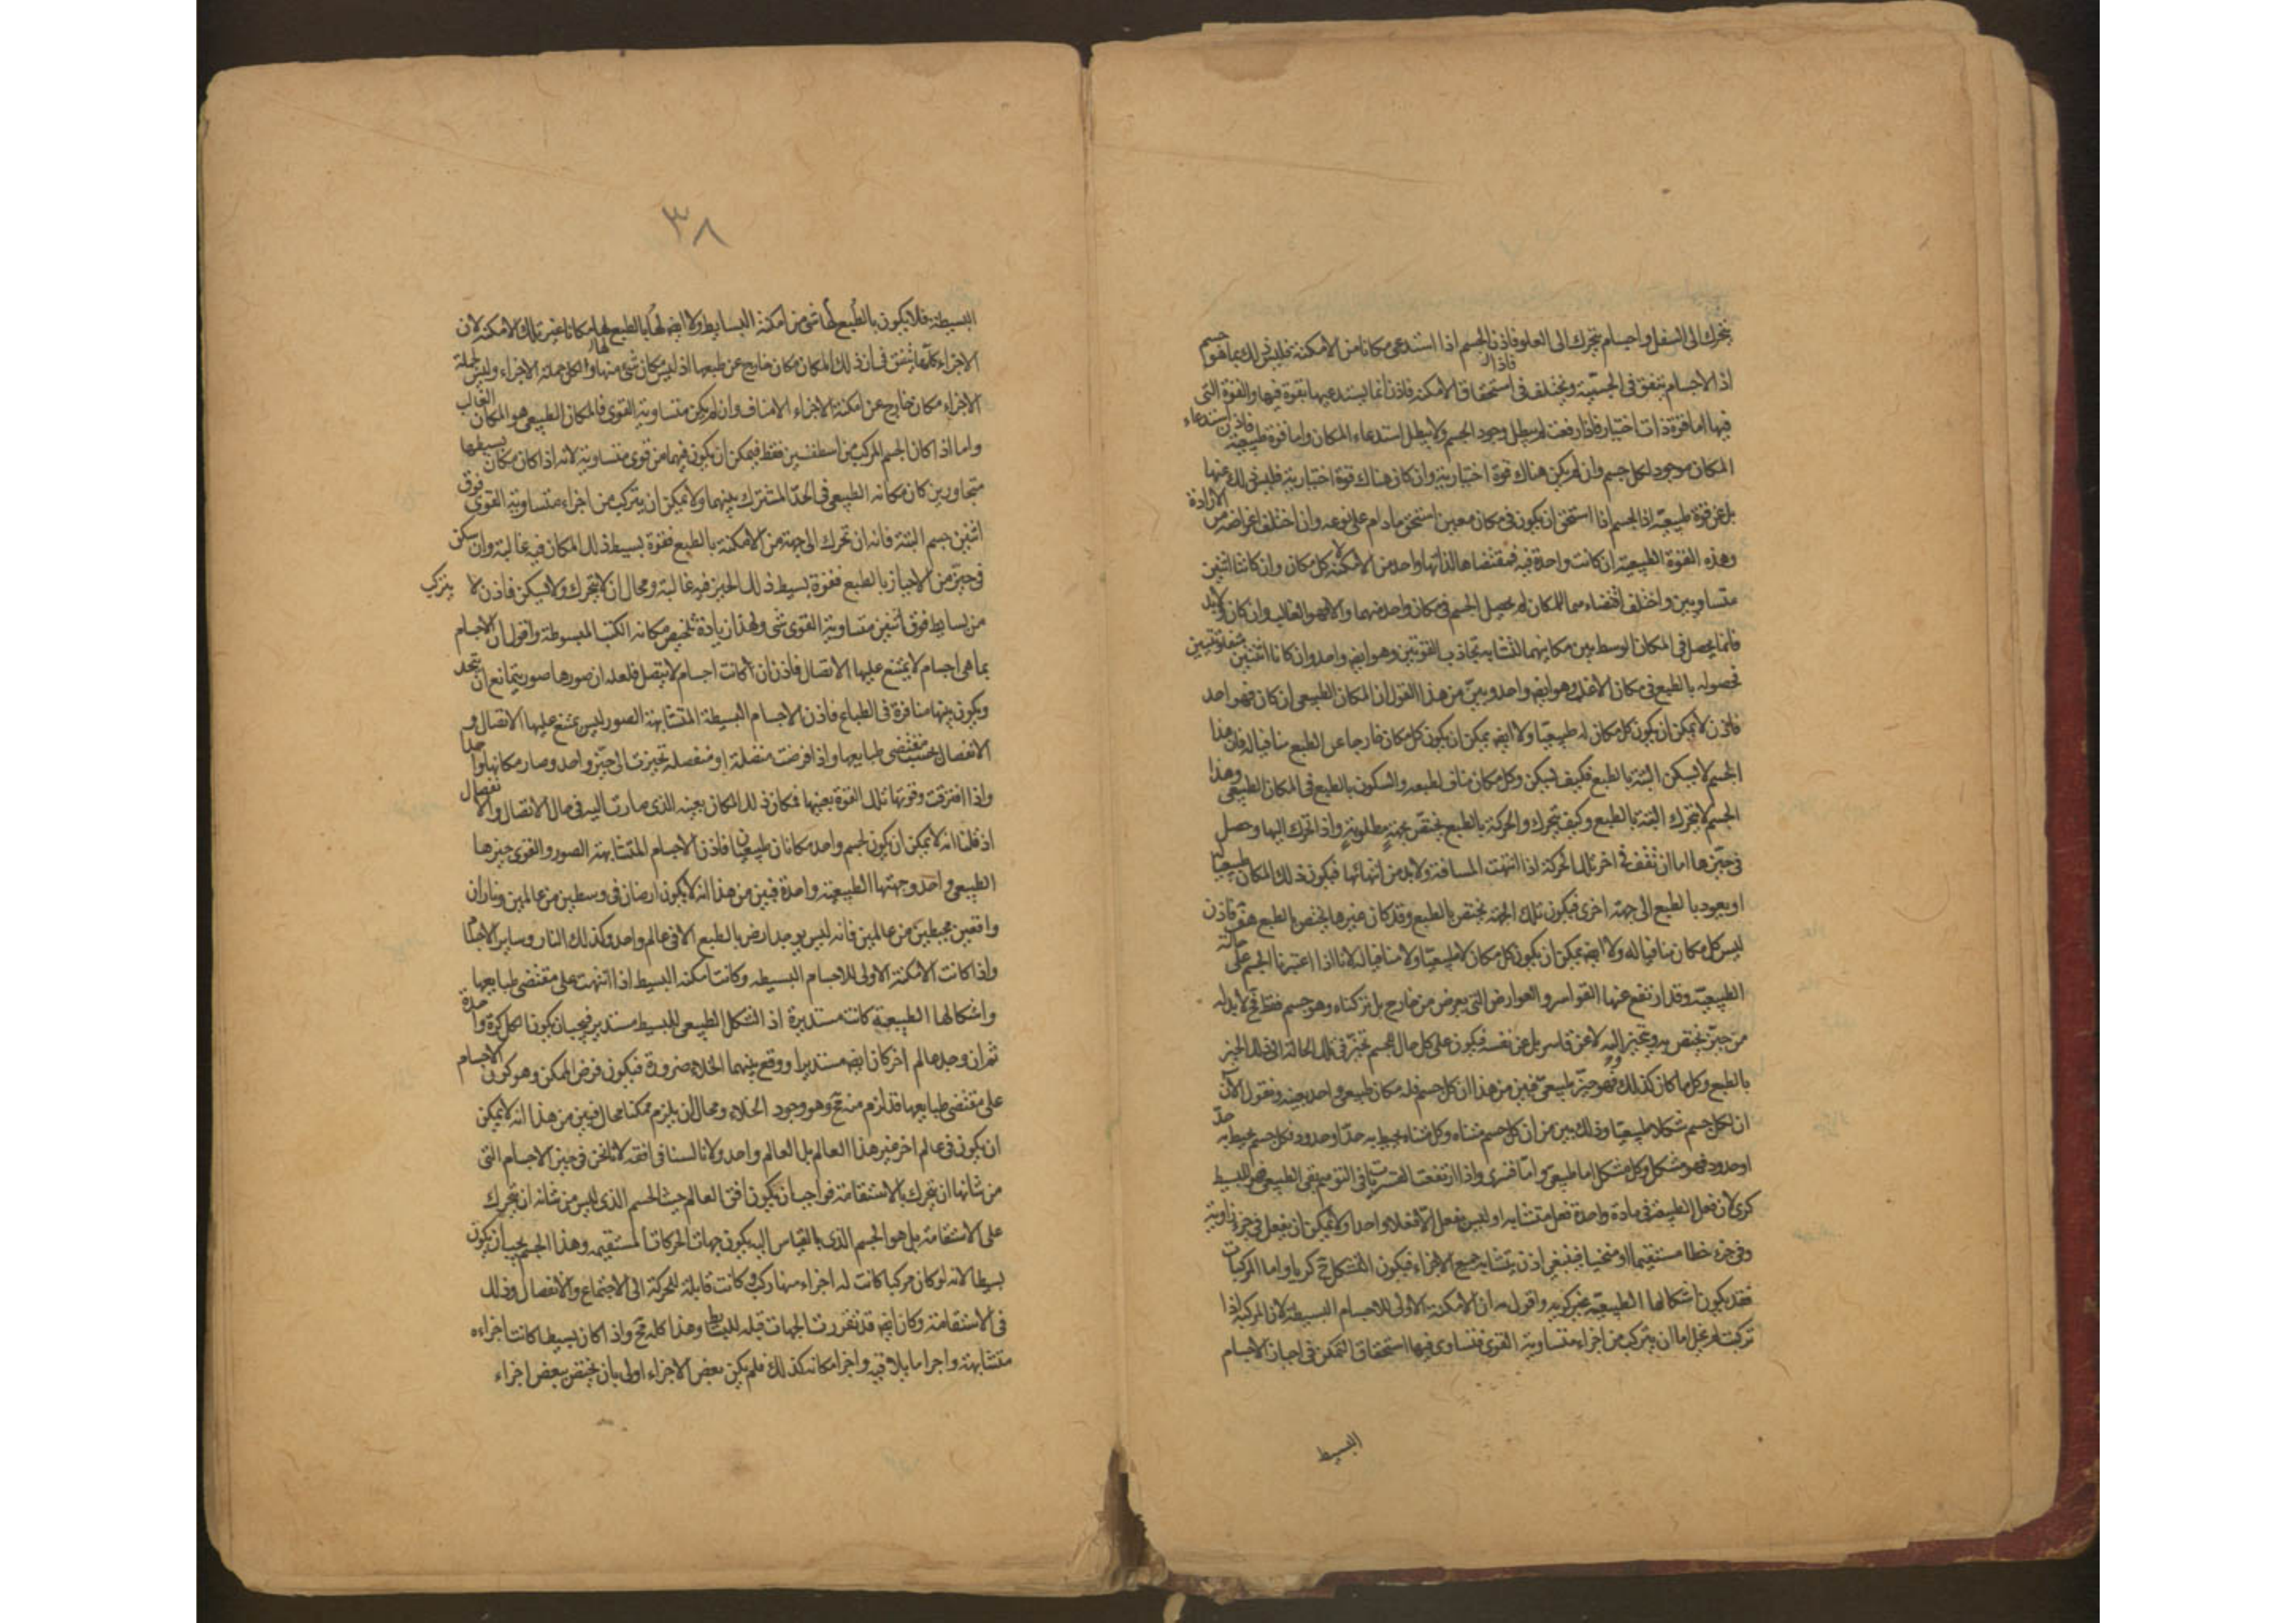 يتحرك الى السفل واجسام يتحرك الى العلو فاذن الجسم اذا استدعى مكانا من الامكنة فليس ذلك بما هو جسم
اذ الاجسام يتفق فى الجسمية ويختلف فى استحقاق الامكنة فاذن انما يستدعيها بقوة فيها والقوة التى
فيها اما قوة ذات اختيار فاذا رفعت لم يبطل وجود الجسم ولا يبطل استدعاء المكان واما قوة طبيعية فاذن استدعاء
المكان موجود لكل جسم وان لم يكن هناك قوة اختيارية وان كان هناك قوة اختيارية فليس ذلك عنها
بل عن قوة طبيعية اذ الجسم اذا استحق ان يكون فى مكان معين استحق ما دام على نوعه وان اختلف اعراضه من الارادة
وهذه القوة الطبيعية ان كانت واحدة فيه فمقتضاها لذاتها واحد من الامكنة لا كل مكان وان كانتا اثنين
متساويين واختلف اقتضاءهما للمكان لم يحصل الجسم فى مكان واحد منهما والا فهو الغالب وان كان ولابد
فانما يحصل فى المكان الوسط بين مكانيهما لتشابه تجاذب القوتين وهو ايضا واحد وان كانا اثنتين متفاوتتين
فحصوله بالطبع فى مكان الاغلب وهو ايضا واحد وبين من هذا القول ان المكان الطبيعى ان كان فهو واحد
فاذن لا يمكن ان يكون كل مكان له طبيعيا ولا ايضا يمكن ان يكون كل مكان خارجا عن الطبع منافيا له فان هذا
الجسم لا يسكن البتة بالطبع فكيف يسكن وكل مكان مناف لطبعه والسكون بالطبع فى المكان الطبيعى وهذا
الجسم لا يتحرك البتة بالطبع وكيف يتحرك والحركة بالطبع يختص بجهة مطلوبة واذا تحرك اليها وحصل
فى حيزها اما ان تقف فى اخر تلك الحركة اذا انتهت المسافة ولابد من انتهائها فيكون ذلك المكان طبيعيا
او يعود بالطبع الى جهة اخرى فيكون تلك الجهة تختص بالطبع وقد كان غيرها يختص بالطبع هف فاذن
ليس كل مكان منافيا له ولا ايضا يمكن ان يكون كل مكان لا طبيعيا ولا منافيا له لانا اذا اعتبرنا الجسم على حالته
الطبيعية وقد ارتفع عنها القواسر والعوارض التى يعرض من خارج بل تركناه وهو جسم فقط فح لابد له
من حيز يختص به ويتحيز اليه لا عن قاسر بل عن نفسه فيكون على كل حال الجسم تحيز فى تلك الحالة الى ذلك الحيز
بالطبع وكل ما كان كذلك فهو حيز طبيعى فبين من هذا ان كل جسم فله مكان طبيعى واحد بعينه ونقول الآن
ان لكل جسم شكلا طبيعيا وذلك بين من ان كل جسم متناه وكل متناه يحيط به حد او حدود فكل جسم يحيط به حد
او حدود فهو مشكل وكل شكل اما طبيعى واما قسرى واذا ارتفعت القسريات فى التوهم بقى الطبيعى فهو للبسيط
كرى لان فعل الطبيعة فى مادة واحدة فعل متشابه وليس يفعل الا فعلا واحدا ولا يمكن ان يفعل فى جزء زاوية
وفى جزء خطا مستقيما او منحنيا فينبغى اذن يتشابه جميع الاجزاء فيكون الشكل ح كريا واما المركبات
فقد يكون اشكالها الطبيعية غير كريه واقول ان الامكنة الاولى للاجسام البسيطة لان المركبة اذا
تركبت لم يخل اما ان يتركب من اجزاء متساوية القوى فتساوى فيها استحقاق التمكن فى احياز الاجسام
البسيط
٣٨
البسيطة فلا يكون بالطبع لها شى من امكنة البسايط ولا ايضا لها بالطبع مكانا غير تلك الامكنة لان
الاجزاء كلها يتفق فى ان ذلك المكان مكان خارج عن طبعها اذ ليس مكان شئ منها والكل جملة الاجزاء وليس لجملة
الاجزاء مكان خارج عن امكنة الاجزاء الا مناف وان لم يكن متساوية القوى فالمكان الطبيعى هو المكان الغالب
واما اذا كان الجسم المركب من اسطقسين فقط فيمكن ان يكون فيهما من قوى متساوية لانه اذا كان مكان بسيطها
متجاورين كان مكانه الطبيعى فى الحد المشترك بينهما ولا يمكن ان يتركب من اجزاء متساوية القوى فوق
اثنين جسم البتة فانه ان تحرك الى جهة من الامكنة بالطبع فقوة بسيط ذلك المكان فيه غالبة وان سكن
فى حيز من الاحياز بالطبع فقوة بسيط ذلك الحيز فيه غالبة ومحال ان لا يتحرك ولا يسكن فاذن لا يتركب
من بسايط فوق اثنين متساوية القوى شى ولهذا زيادة تلخيص مكانه الكتب المبسوطة واقول ان الاجسام
بما هى اجسام لا يمتنع عليها الاتصال فاذن ان كانت اجسام لا يتصل فلعله ان صورها صور يتمانع ان يتحد
ويكون بينها منافرة فى الطباع فاذن الاجسام البسيطة المتشابهة الصور ليس يمتنع عليها الاتصال و
الانفصال بحسب مقتضى طبايعها واذا فرضت متصلة او منفصلة تحيزت الى حيز واحد وصار مكانها واحدا
واذا افترقت وقوتها تلك القوة بعينها فكان ذلك المكان بعينه الذى صارت اليه فى حال الاتصال والانفصال
اذ قلنا انه لا يمكن ان يكون لجسم واحد مكانان طبيعيان فاذن الاجسام المتشابهة الصور والقوى حيزها
الطبيعى واحد وجهتها الطبيعية واحدة فبين من هذا انه لا يكون ارضان فى وسطين من عالمين وناران
واقعين محيطين من عالمين فانه ليس يوجد ارض بالطبع الا فى عالم واحد وكذلك النار وساير الاجسام
واذا كانت الامكنة الاولى للاجسام البسيطه وكانت امكنه البسيط اذا انتهت على مقتضى طبايعها
واشكالها الطبيعية كانت مستديرة اذ الشكل الطبيعى للبسيط مستدير فيجب ان يكون الكل كرة واحدة
ثم ان وجد عالم اخر كان ايضا مستديرا ووقع بينهما الخلاء ضرورة فيكون فرض الممكن وهو كون الاجسام
على مقتضى طبايعها قد لزم منه مح وهو وجود الخلاء ومحال ان يلزم ممكنا محال فبين من هذا انه لا يمكن
ان يكون فى عالم اخر غير هذا العالم بل العالم واحد ولانا لسنا فى افقه لانا نحن فى حيز الاجسام التى
من شانها ان يتحرك بالاستقامة فواجب ان يكون افق العالم حيث الجسم الذى ليس من شانه ان يتحرك
على الاستقامة بل هو الجسم الذى بالقياس اليه يكون جهات الحركات المستقيمه وهذا الجسم يجب ان يكون
بسيطا لانه لو كان مركبا كانت له اجزاء منها ركب وكانت قابلة للحركة الى الاجتماع والانفصال وذلك
فى الاستقامة وكان ايضا قد تقررت الجهات قبله للبسائط وهذا كله مح واذا كان بسيطا كانت اجزاءه
متشابهة واجزا ما يلاقيه واجزا مكانه كذلك فلم يكن بعض الاجزاء اولى بان يختص ببعض اجزاء